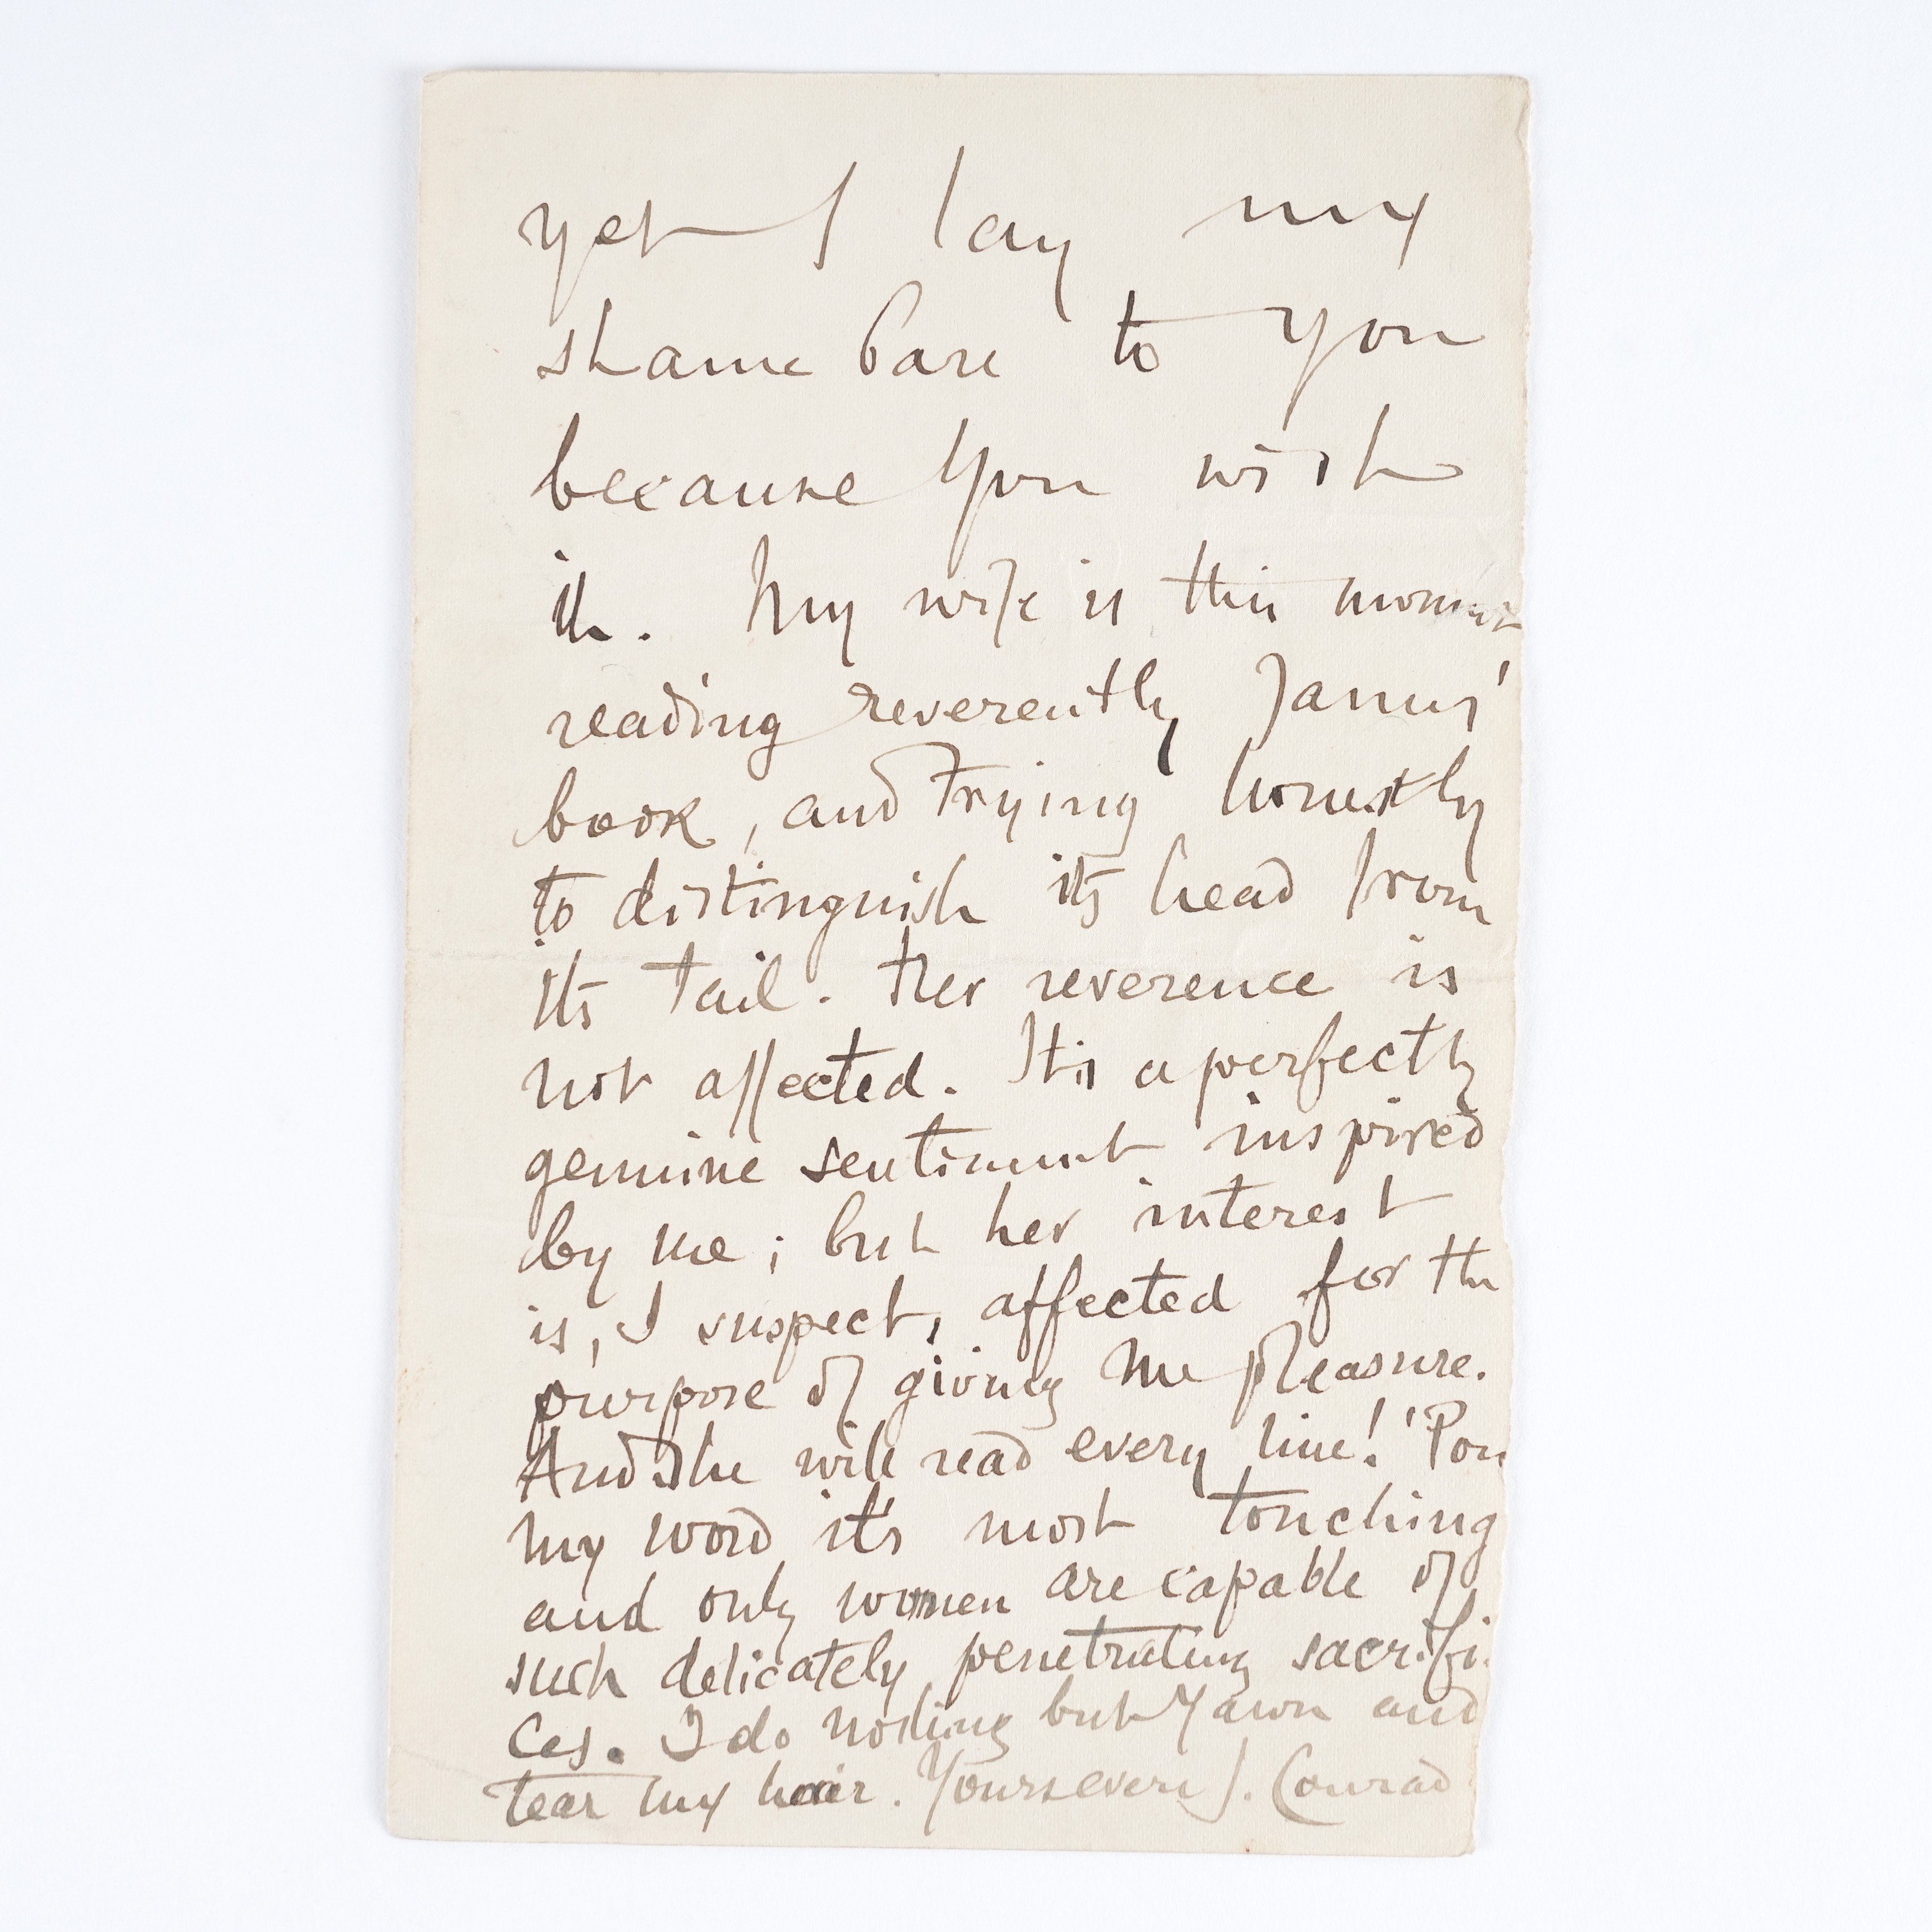 yet I lay my
shame bare to you
because You wish
it. My wife is this moment
reading reverently James'
book, and trying honestly
to distinguish its head from
its tail. Her reverence is
not affected. It is a perfectly
genuine sentiment inspired
by me; but her interest
is, I suspect, affected for the
purpose of giving me pleasure.
And she will read every line! 'Pon
my word it's most touching
and only women are capable of
such delicately penetrating sacrifi-
ces. I do nothing but Yawn and
tear my hair. Yours ever J. Conrad